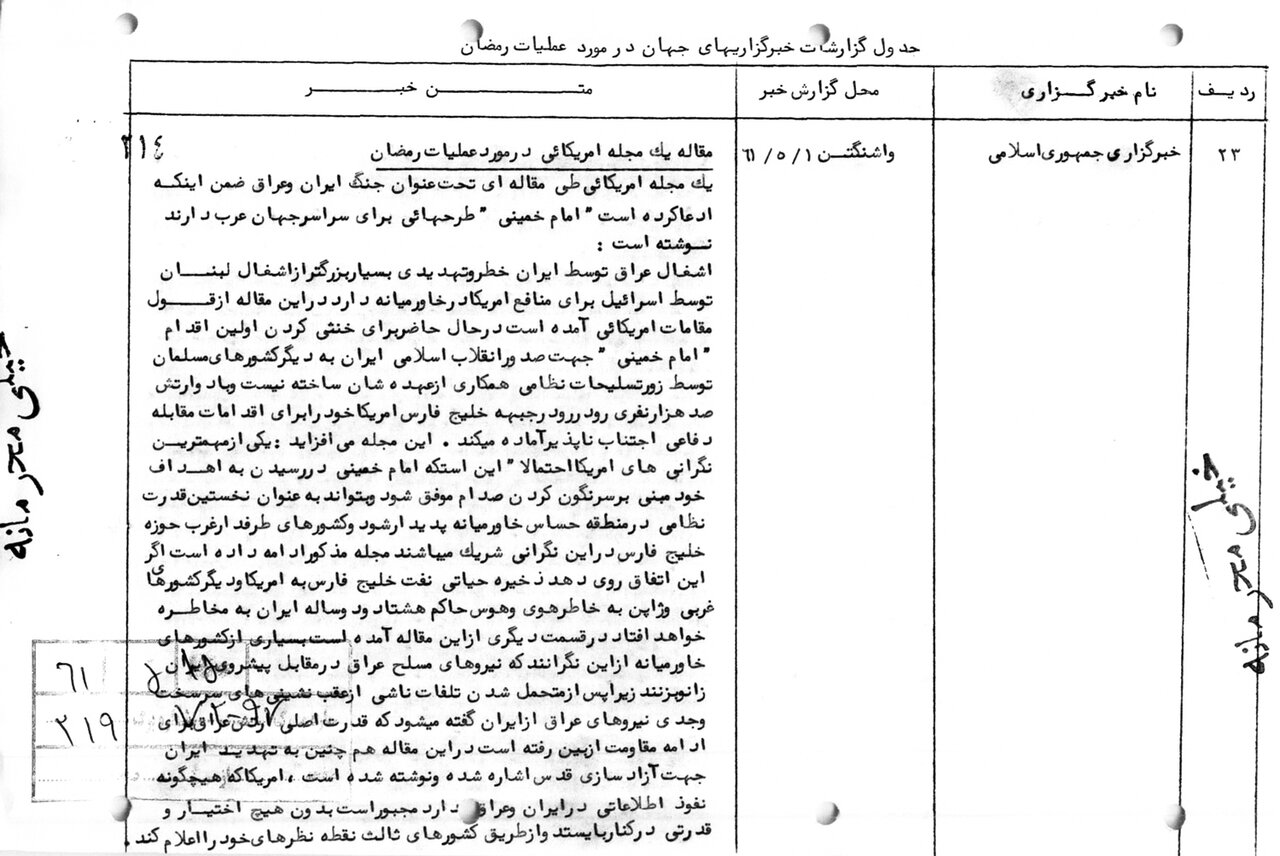 جدول گزارشات خبرگزاریهای جهان در مورد عملیات رمضان
ردیف
نام خبرگزاری
محل گزارش خبر
متن خبر
۲۳
خبرگزاری جمهوری اسلامی
واشنگتن ۶۱/۵/۱
۲۱۴
مقاله یك مجله امریكائی در مورد عملیات رمضان
یك مجله امریكائی طی مقاله ای تحت عنوان جنگ ایران وعراق ضمن اینكه
ادعا كرده است "امام خمینی " طرحهائی برای سراسر جهان عرب دارند
نوشته است :
اشغال عراق توسط ایران خطر وتهدیدی بسیار بزرگتر از اشغال لبنان
توسط اسرائیل برای منافع امریكا در خاورمیانه دارد در این مقاله از قول
مقامات امریكائی آمده است در حال حاضر برای خنثی كردن اولین اقدام
"امام خمینی " جهت صدور انقلاب اسلامی ایران به دیگر كشورهای مسلمان
توسط زور تسلیحات نظامی همكاری از عهده شان ساخته نیست وباد وارتش
صد هزار نفری رود ررود رجبهه خلیج فارس امریكا خود را برای اقدامات مقابله
دفاعی اجتناب ناپذیر آماده میكند . این مجله می افزاید : یكی از مهمترین
نگرانی های امریكا احتمالا" این استكه امام خمینی در رسیدن به اهداف
خود مبنی بر سرنگون كردن صدام موفق شود وبتواند به عنوان نخستین قدرت
نظامی در منطقه حساس خاورمیانه پدیدار شود وكشورهای طرفدار غرب حوزه
خلیج فارس در این نگرانی شریك میباشند مجله مذكور ادامه داده است اگر
این اتفاق روی دهد ذخیره حیاتی نفت خلیج فارس به امریكا ودیگر كشورهای
غربی وژاپن به خاطر هوی وهوس حاكم هشتاد ود وساله ایران به مخاطره
خواهد افتاد در قسمت دیگری از این مقاله آمده است بسیاری از كشورهای
خاورمیانه از این نگرانند كه نیروهای مسلح عراق در مقابل پیشروی ایران
زانو بزنند زیرا پس از متحمل شدن تلفات ناشی از عقب نشینی های سرسخت
وجدی نیروهای عراق از ایران گفته میشود كه قدرت اصلی ارتش عراق برای
ادامه مقاومت از بین رفته است در این مقاله هم چنین به تهدید ایران
جهت آزاد سازی قدس اشاره شده ونوشته شده است ، امریكا كه هیچگونه
نفوذ اطلاعاتی در ایران وعراق دارد مجبور است بدون هیچ اختیار و
قدرتی در كنار بایستد واز طریق كشورهای ثالث نقطه نظرهای خود را اعلام كند .
خیلی محرمانه
خیلی محرمانه
۶۱
۲۱۹